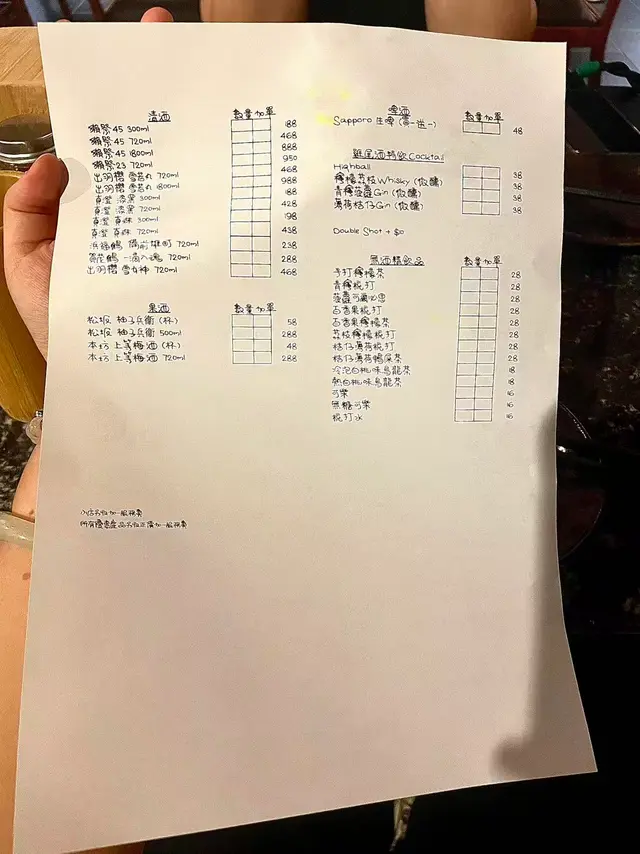 清酒 數量 加單
獺祭 45 300ml 188
獺祭 45 720ml 468
獺祭 45 1800ml 888
獺祭 23 720ml 950
出羽櫻 雪若丸 720ml 468
出羽櫻 雪若丸 1800ml 988
真澄 漆黑 300ml 188
真澄 漆黑 720ml 428
真澄 真朱 300ml 198
真澄 真朱 720ml 438
浜福鶴 備前雄町 720ml 238
鶴 一滴入魂 720ml 288
出羽櫻 雪女神 720ml 468
果酒 數量 加單
松坂 柚子兵衛 (杯) 58
松坂 柚子兵衛 500ml 288
本坊 上等梅酒 (杯) 48
本坊 上等梅酒 720ml 288
小店另收加一服務費
所有優惠產品另收正價加一服務費
啤酒 數量 加單
Sapporo 生啤 (買一送一) 48
雞尾酒特飲 Cocktail
Highball 38
檸檬荔枝 Whisky (微醺) 38
青檸菠蘿 Gin (微醺) 38
薄荷桔仔 Gin (微醺) 38
Double Shot + $10
無酒精飲品 數量 加單
手打檸檬茶 28
青檸梳打 28
菠蘿可爾必思 28
百香果梳打 28
百香果檸檬茶 28
荔枝檸檬梳打 28
桔仔薄荷梳打 28
桔仔薄荷鴨屎茶 28
冷泡白桃味烏龍茶 18
熱白桃味烏龍茶 18
可樂 16
無糖可樂 16
梳打水 16